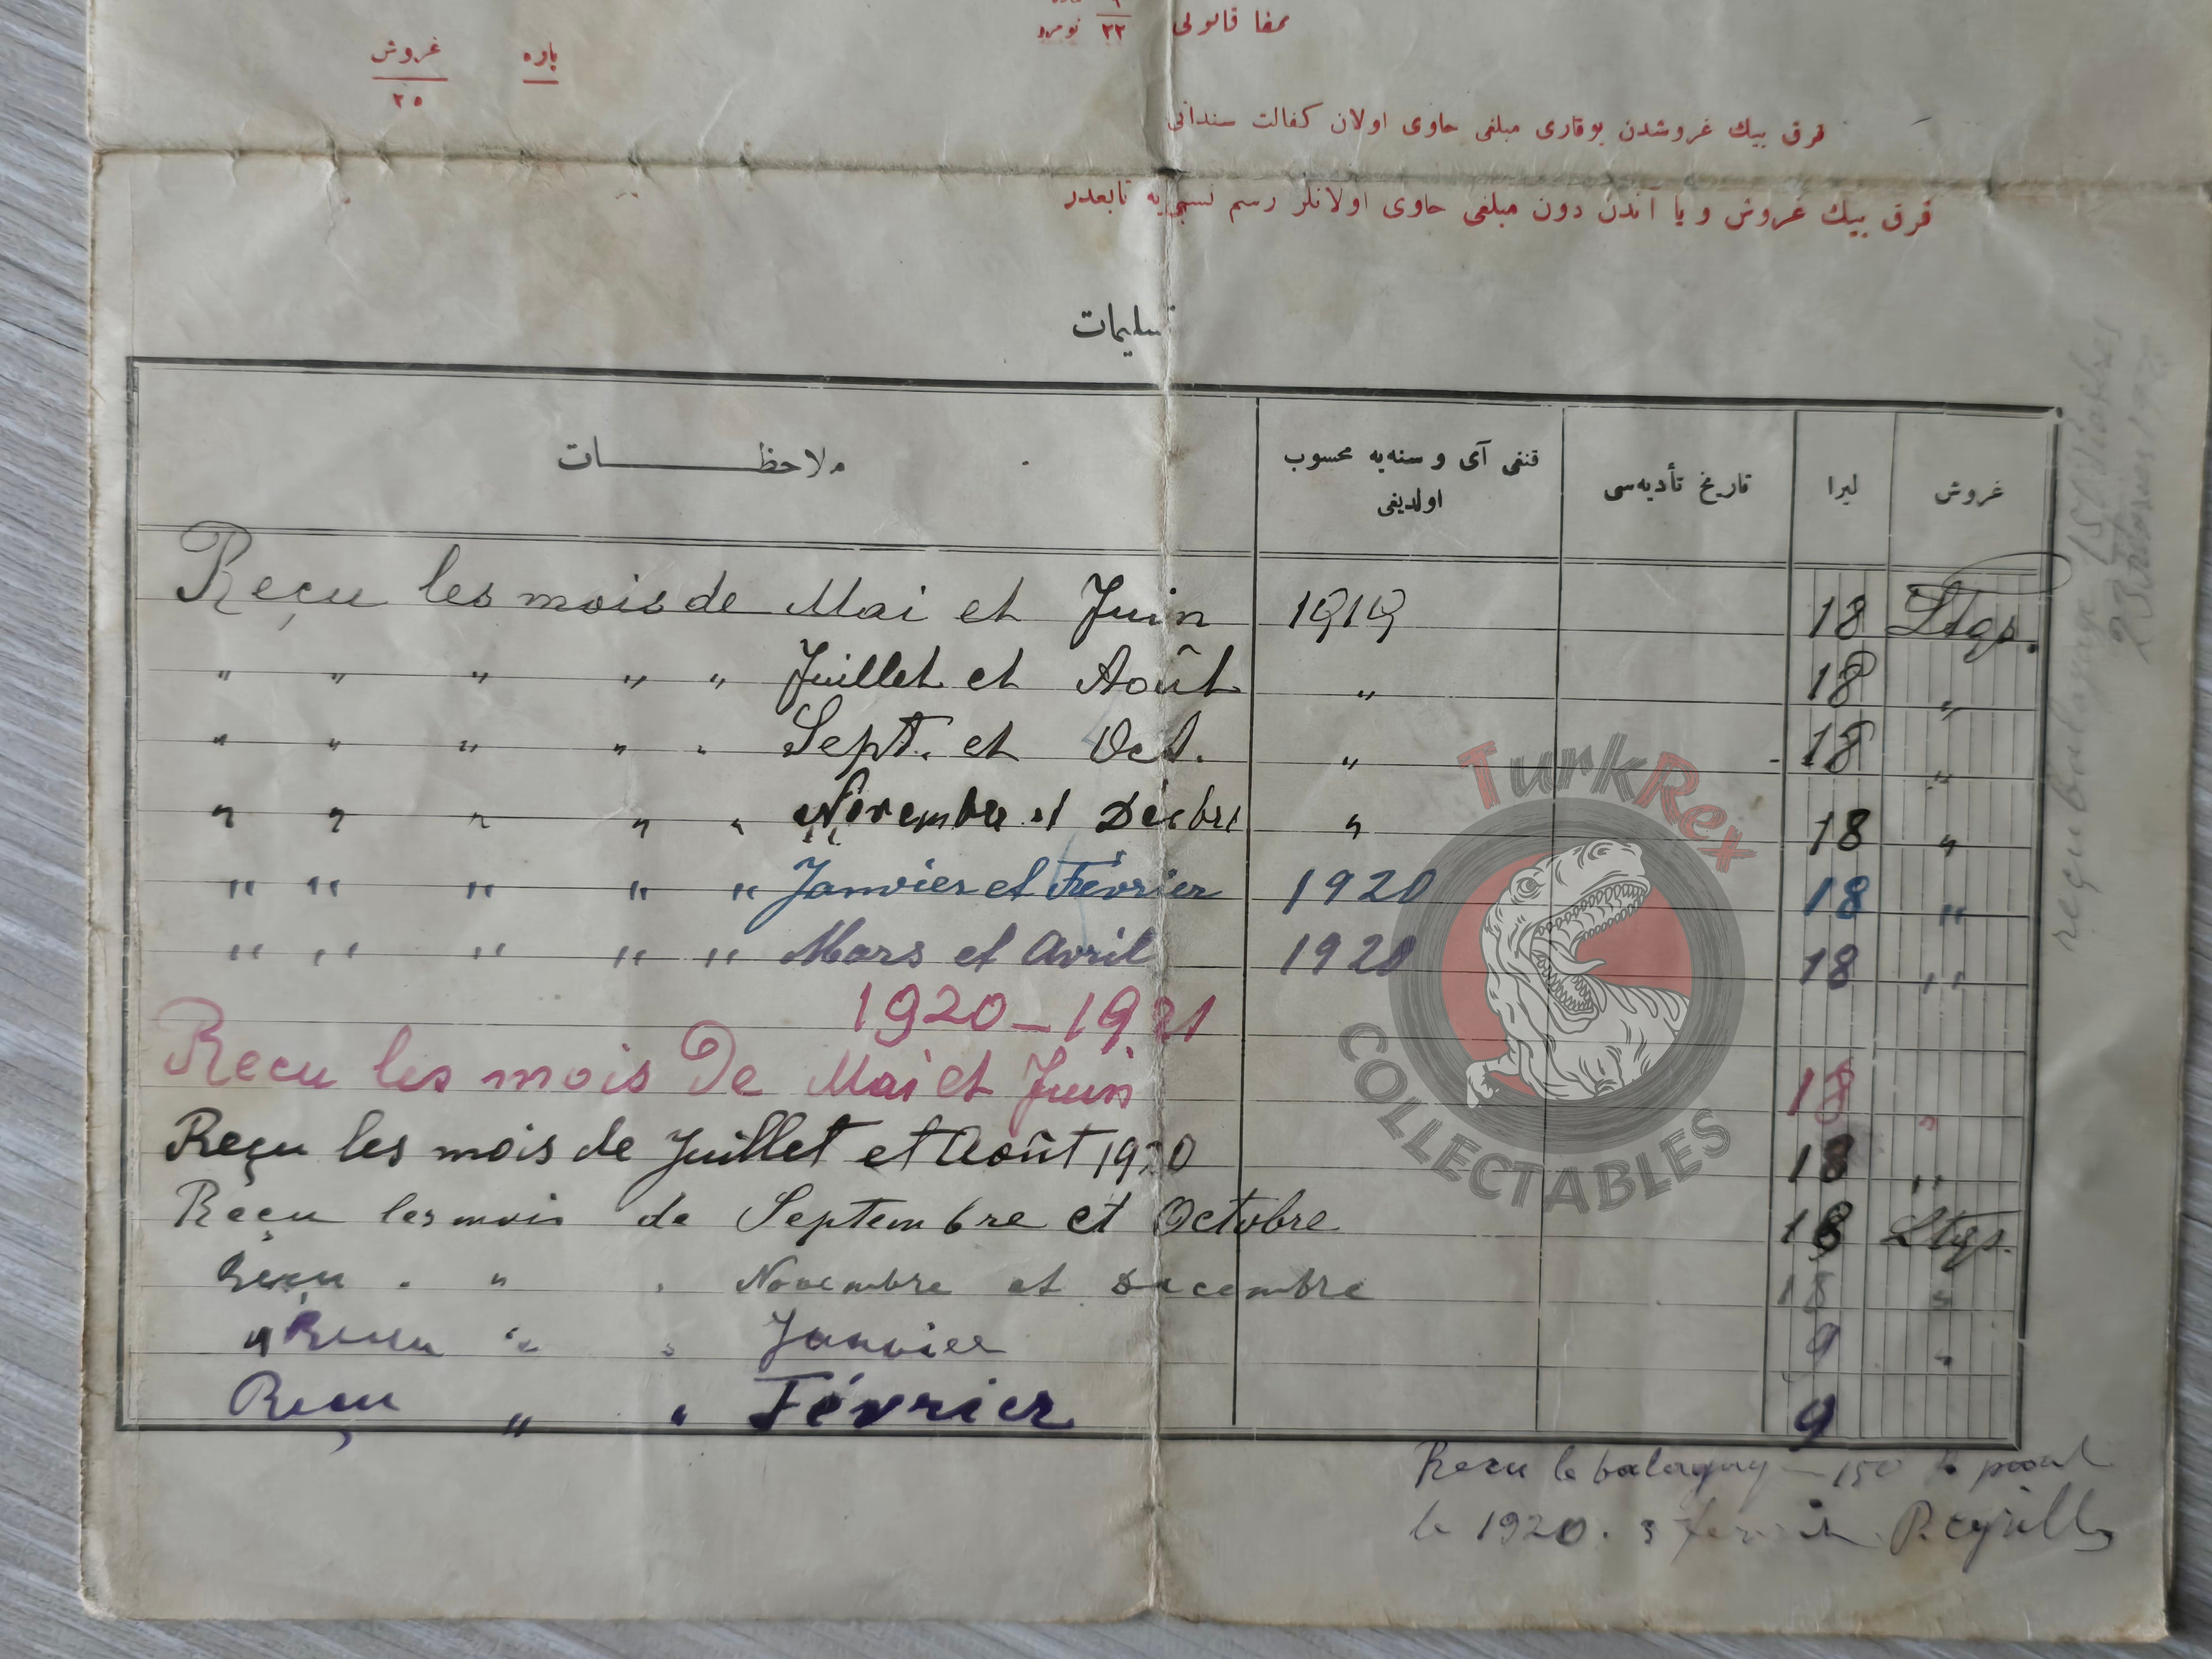 تمغا قانونی ٣٢ نومرو
غروش پاره
٢٥
قرق بیك غروشدن یوقاری مبلغی حاوی اولان کفالت سنداتی
قرق بیك غروش و یا آندن دون مبلغی حاوی اولانلر رسم نسبی‌یه تابعدر
تسلیمات
ملاحظات قنغی آی و سنه‌یه محسوب اولدیغی تاریخ تأدیه‌سی لیرا غروش
Reçu les mois de Mai et Juin 1919 18 Ltqs.
" " " " " Juillet et Août " 18 "
" " " " " Sept. et Oct. " 18 "
" " " " " Novembre et Décbre " 18 "
" " " " " Janvier et Février 1920 18 "
" " " " " Mars et Avril 1920 18 "
1920-1921
Recu les mois De Mai et Juin 18 "
Reçu les mois de Juillet et Août 1920 18 "
Reçu les mois de Septembre et Octobre 18 Ltqs.
Reçu " " " Novembre et Decembre 18 "
" Recu " " Janvier 9 "
Reçu " " Février 9
Recu le 150
le 1920. 3
reçu
TurkRex
COLLECTABLES